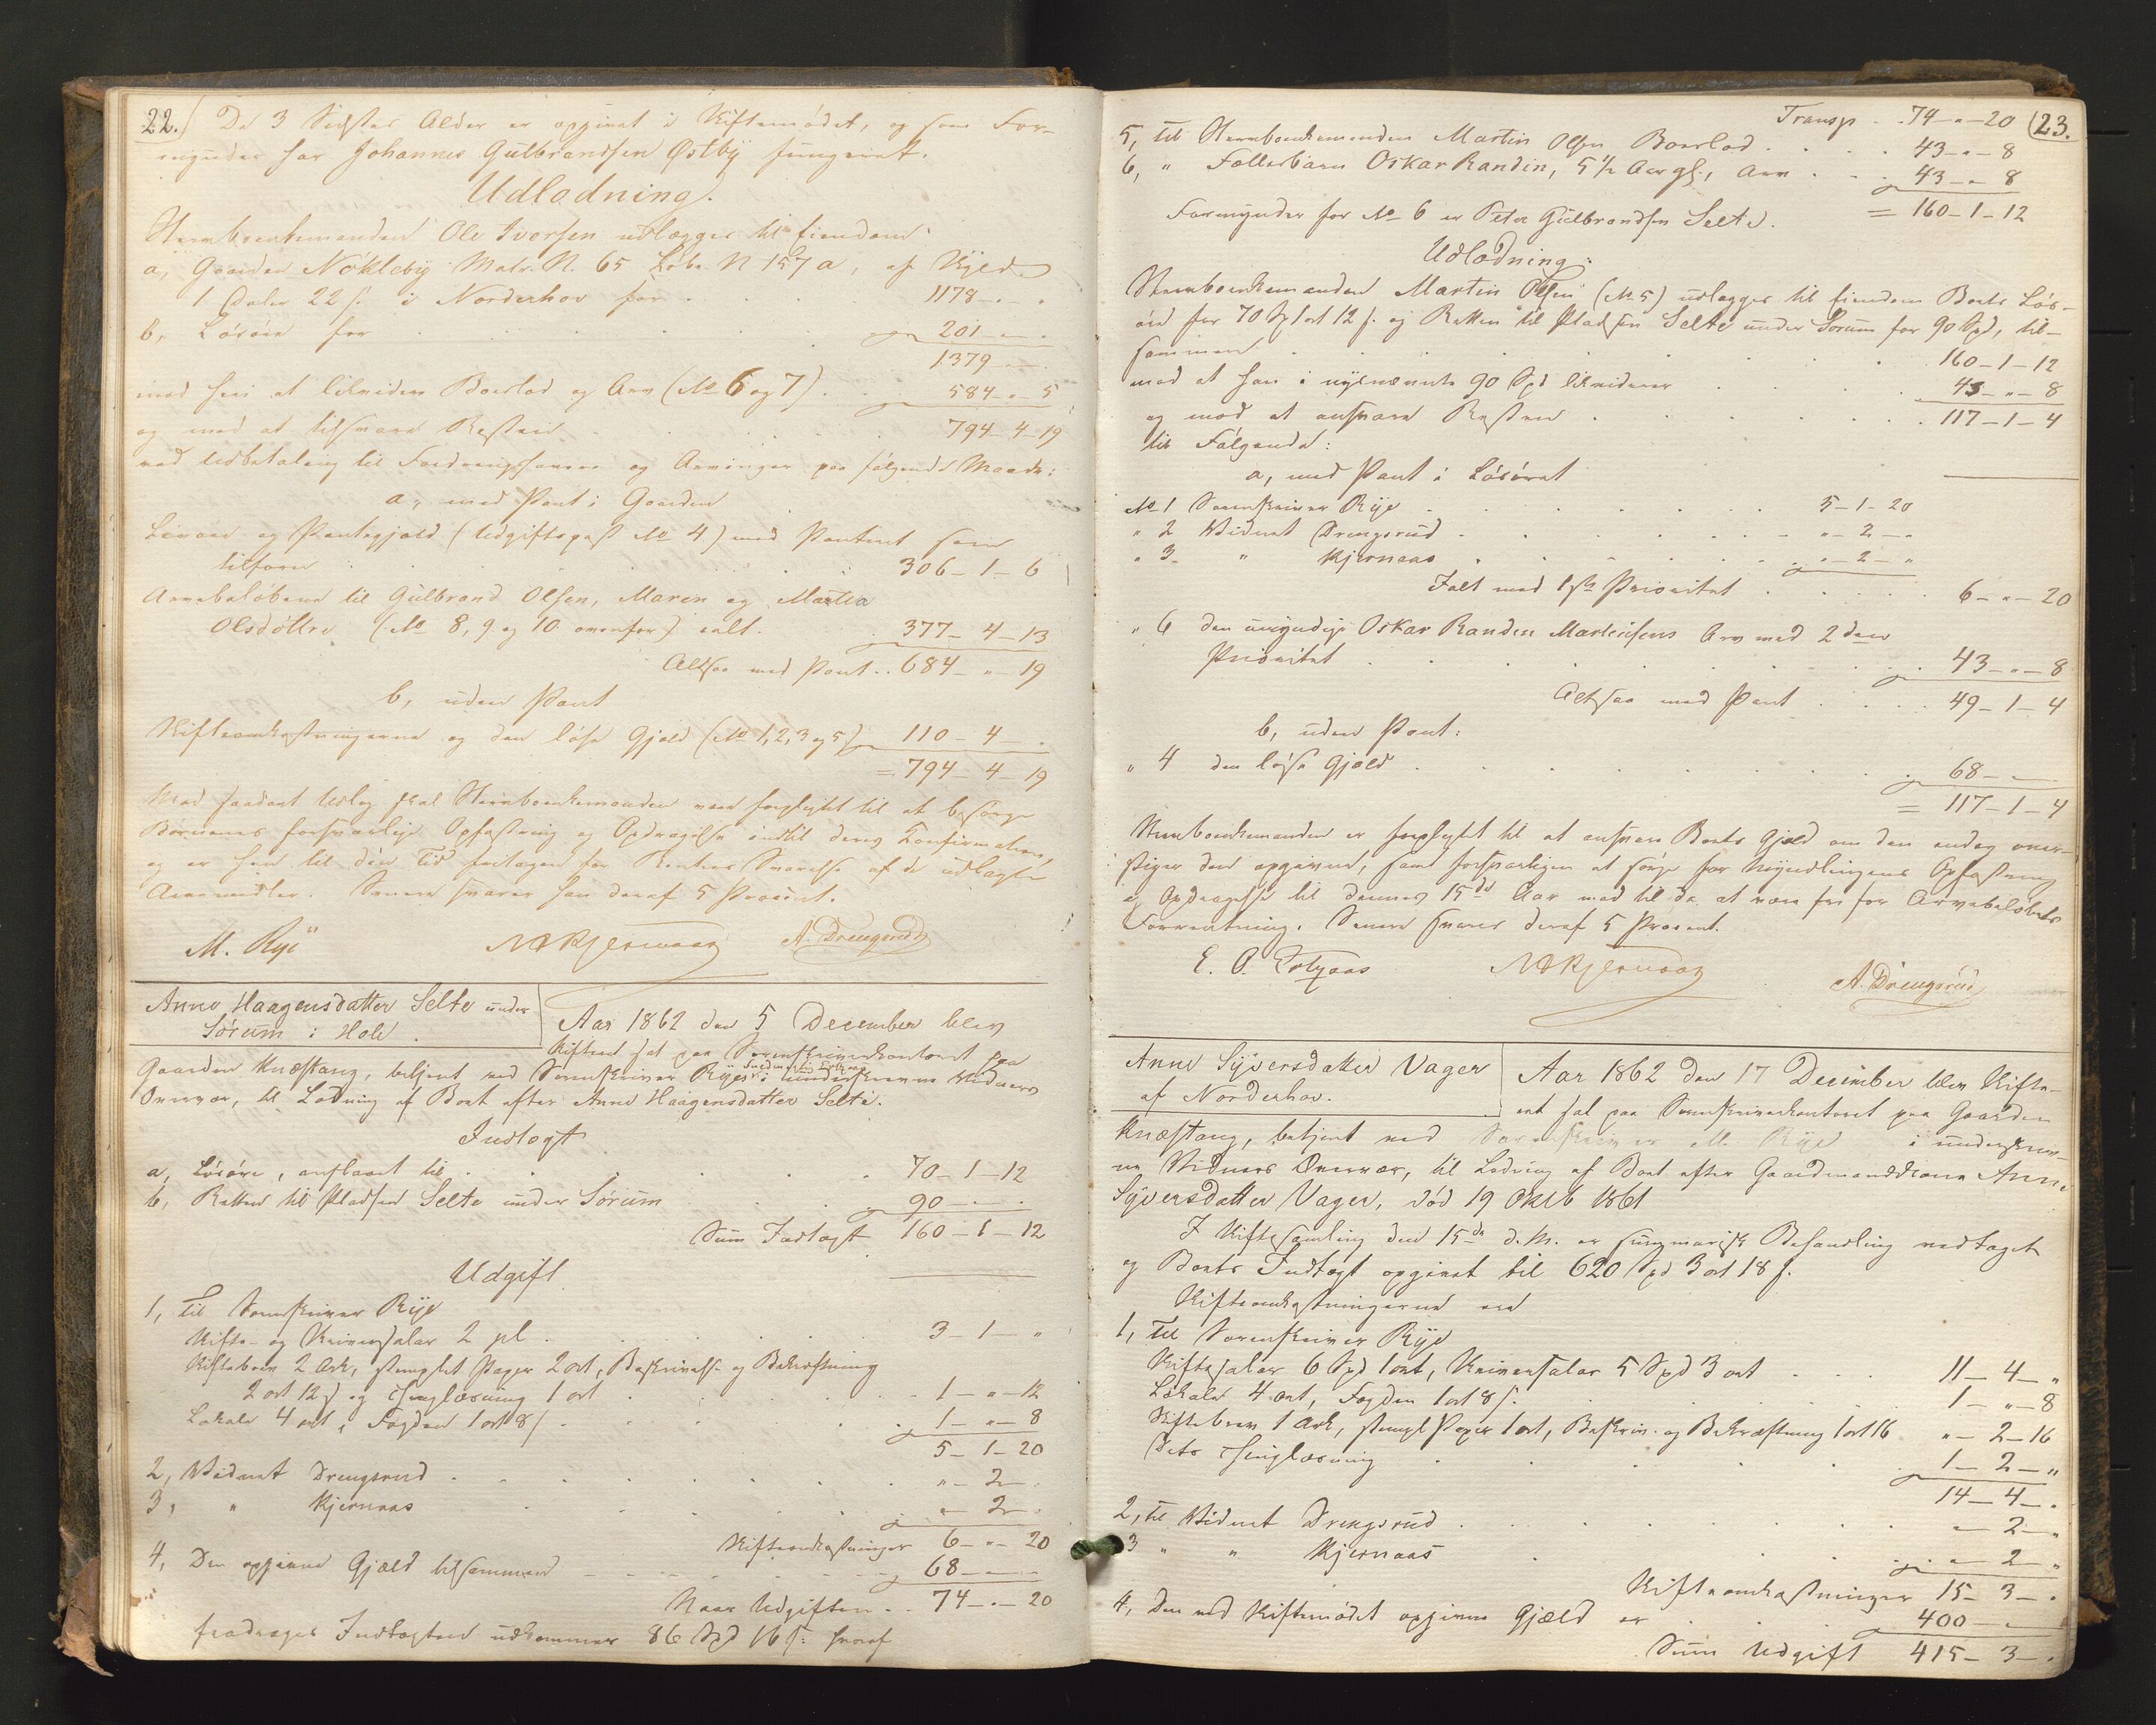 22.) De 3 Sidstes Alder er opgivet i Skiftemødet, og som For-
mynder har Johannes Gulbrandsen Østby fungeret.
Udlodning.
Stervboenkemanden Ole Iversen udlægges til Eiendom:
a, Gaarden Nökleby Matr. N. 65 Løbe N 157 a, af Skyld
1 Daler 22 s. i Norderhov for . . . 1178 - " - "
b, Løsøre for . . . 201 - " - "
1379 - " - "
mod heri at likvidere Boeslod og Arv (No 6 og 7) . . 584 - " - 5
og mod at tilsvare Resten . . . 794 - 4 - 19
ved Udbetaling til Fordringshavere og Arvinger paa følgende Maade:
a, med Pant i Gaarden
Livøre og Pantegjæld (Udgiftspost No 4) med Panteret som
tilforn . . . 306 - 1 - 6
Arvebeløbene til Gulbrand Olsen, Maren og Martea
Olsdøttre (No 8, 9 og 10 ovenfor) ialt . 377 - 4 - 13
Altsaa med Pant . . 684 - " - 19
b, uden Pant
Skifteomkostningerne og den løse Gjæld (No 1, 2, 3 og 5) 110 - 4 - "
= 794 - 4 - 19
Mod saadant Udlæg skal Stervboenkemanden være forpligtet til at besørge
Børnenes forsvarlige Opfostring og Opdragelse indtil deres Confirmation,
og er han til den Tid fritagen for Renters Svarelse af de udlagte
Arvemidler. Senere svarer han deraf 5 Procent.
M. Rye NAKjernaas A. Drengsrud
Anne Haagensdatter Selte under
Sørum i Hole.
Aar 1862 den 5 December blev
Skifteret sat paa Sorenskriverkontoret paa
Gaarden Knæstang, betjent ved Sorenskriver Ryes i underskrevne Vidners
Overvær, til Lodning af Boet efter Anne Haagensdatter Selte.
Indtægt
a, Løsøre, anslaaet til . . . 70 - 1 - 12
b, Retten til Pladsen Selte under Sørum . . 90 - " - "
Sum Indtægt 160 - 1 - 12
Udgift
1, Til Sorenskriver Rye
Skifte- og Skriversalær 2 pCt . . . 3 - 1 - "
Skiftebrev 2 Ark, stemplet Papir 2 ort, Beskrivelse og Bekræftning
2 ort 12 s og Thinglæsning 1 ort . . . 1 - " - 12
Lokale 4 ort, Fogden 1 ort 8 s . . . 1 - " - 8
5 - 1 - 20
2, Vidnet Drengsrud . . . " - 2 - "
3, " Kjernaas . . . " - 2 - "
Skifteomkostninger 6 - " - 20
4, Den opgivne Gjæld tilsammen . . . 68 - " - "
Naar Udgiften . . 74 - " - 20
fradrages Indtægten udkommer 86 Spd 16 s: hvoraf
Transp . . 74 - " - 20 (23.
5, til Stervboenkemanden Martin Olsen Boeslod . . . 43 - " - 8
6, " Fællesbarn Oskar Randin, 5 1/2 Aar gl., Arv . . 43 - " - 8
= 160 - 1 - 12
Formynder for No 6 er Peter Gulbrandsen Selte.
Udlodning:
Stervboenkemanden Martin Olsen (No 5) udlægges til Eiendom Boets Løs-
øre for 70 Spd 1 ort 12 s. og Retten til Pladsen Selte under Sørum for 90 Spd, til-
sammen . . . 160 - 1 - 12
mod at han i nysnævnte 90 Spd likviderer . . . 43 - " - 8
og mod at ansvare Resten . . . 117 - 1 - 4
til Følgende:
a, med Pant i Løsøret
No 1 Sorenskriver Rye . . . 5 - 1 - 20
" 2 Vidnet Drengsrud . . . " - 2 - "
" 3 " Kjernaas . . . " - 2 - "
Ialt med 1ste Prioritet . . . 6 - " - 20
" 6 den umyndige Oskar Randin Martinsens Arv med 2den
Prioritet . . . 43 - " - 8
Altsaa med Pant . . . 49 - 1 - 4
b, uden Pant:
" 4 den løse Gjæld . . . 68 - " - "
= 117 - 1 - 4
Stervboenkemanden er forpligtet til at ansvare Boets Gjæld om den endog over-
stiger den opgivne, samt forsvarligen at sørge for Myndlingens Opfostring
og Opdragelse til dennes 15de Aar mod til da at være fri for Arvebeløbets
Forrentning. Senere svares deraf 5 Procent.
NAKjernaas A. Drengsrud
Anne Syversdatter Vager
af Norderhov.
Aar 1862 den 17 December blev Skifte-
ret sat paa Sorenskriverkontoret paa Gaarden
Knæstang, betjent ved Sorenskriver M. Rye i underskrev-
ne Vidners Overvær, til Lodning af Boet efter Gaardmandskone Anne
Syversdatter Vager, død 19 Oktb 1861
I Skiftesamling den 15de d. M. er summarisk Behandling vedtaget
og Boets Indtægt opgivet til 620 Spd 3 ort 18 s.
Skifteomkostningerne ere
1, Til Sorenskriver Rye
Skiftesalær 6 Spd 1 ort, Skriversalær 5 Spd 3 ort . . . 11 - 4 - "
Lokale 4 ort, Fogden 1 ort 8 s. . . . 1 - " - 8
Skiftebrev 1 Ark, stempl Papir 1 ort, Beskriv. og Bekræftning 1 ort 16 " - 2 - 16
Dets Thinglæsning . . . 1 - 2 - "
14 - 4 - "
2, til Vidnet Drengsrud . . . " - 2 - "
3 " " Kjernaas . . . " - 2 - "
Skifteomkostninger 15 - 3 - "
4, Den ved Skiftemødet opgivne Gjæld er . . 400 - " - "
Sum Udgift 415 - 3 - "